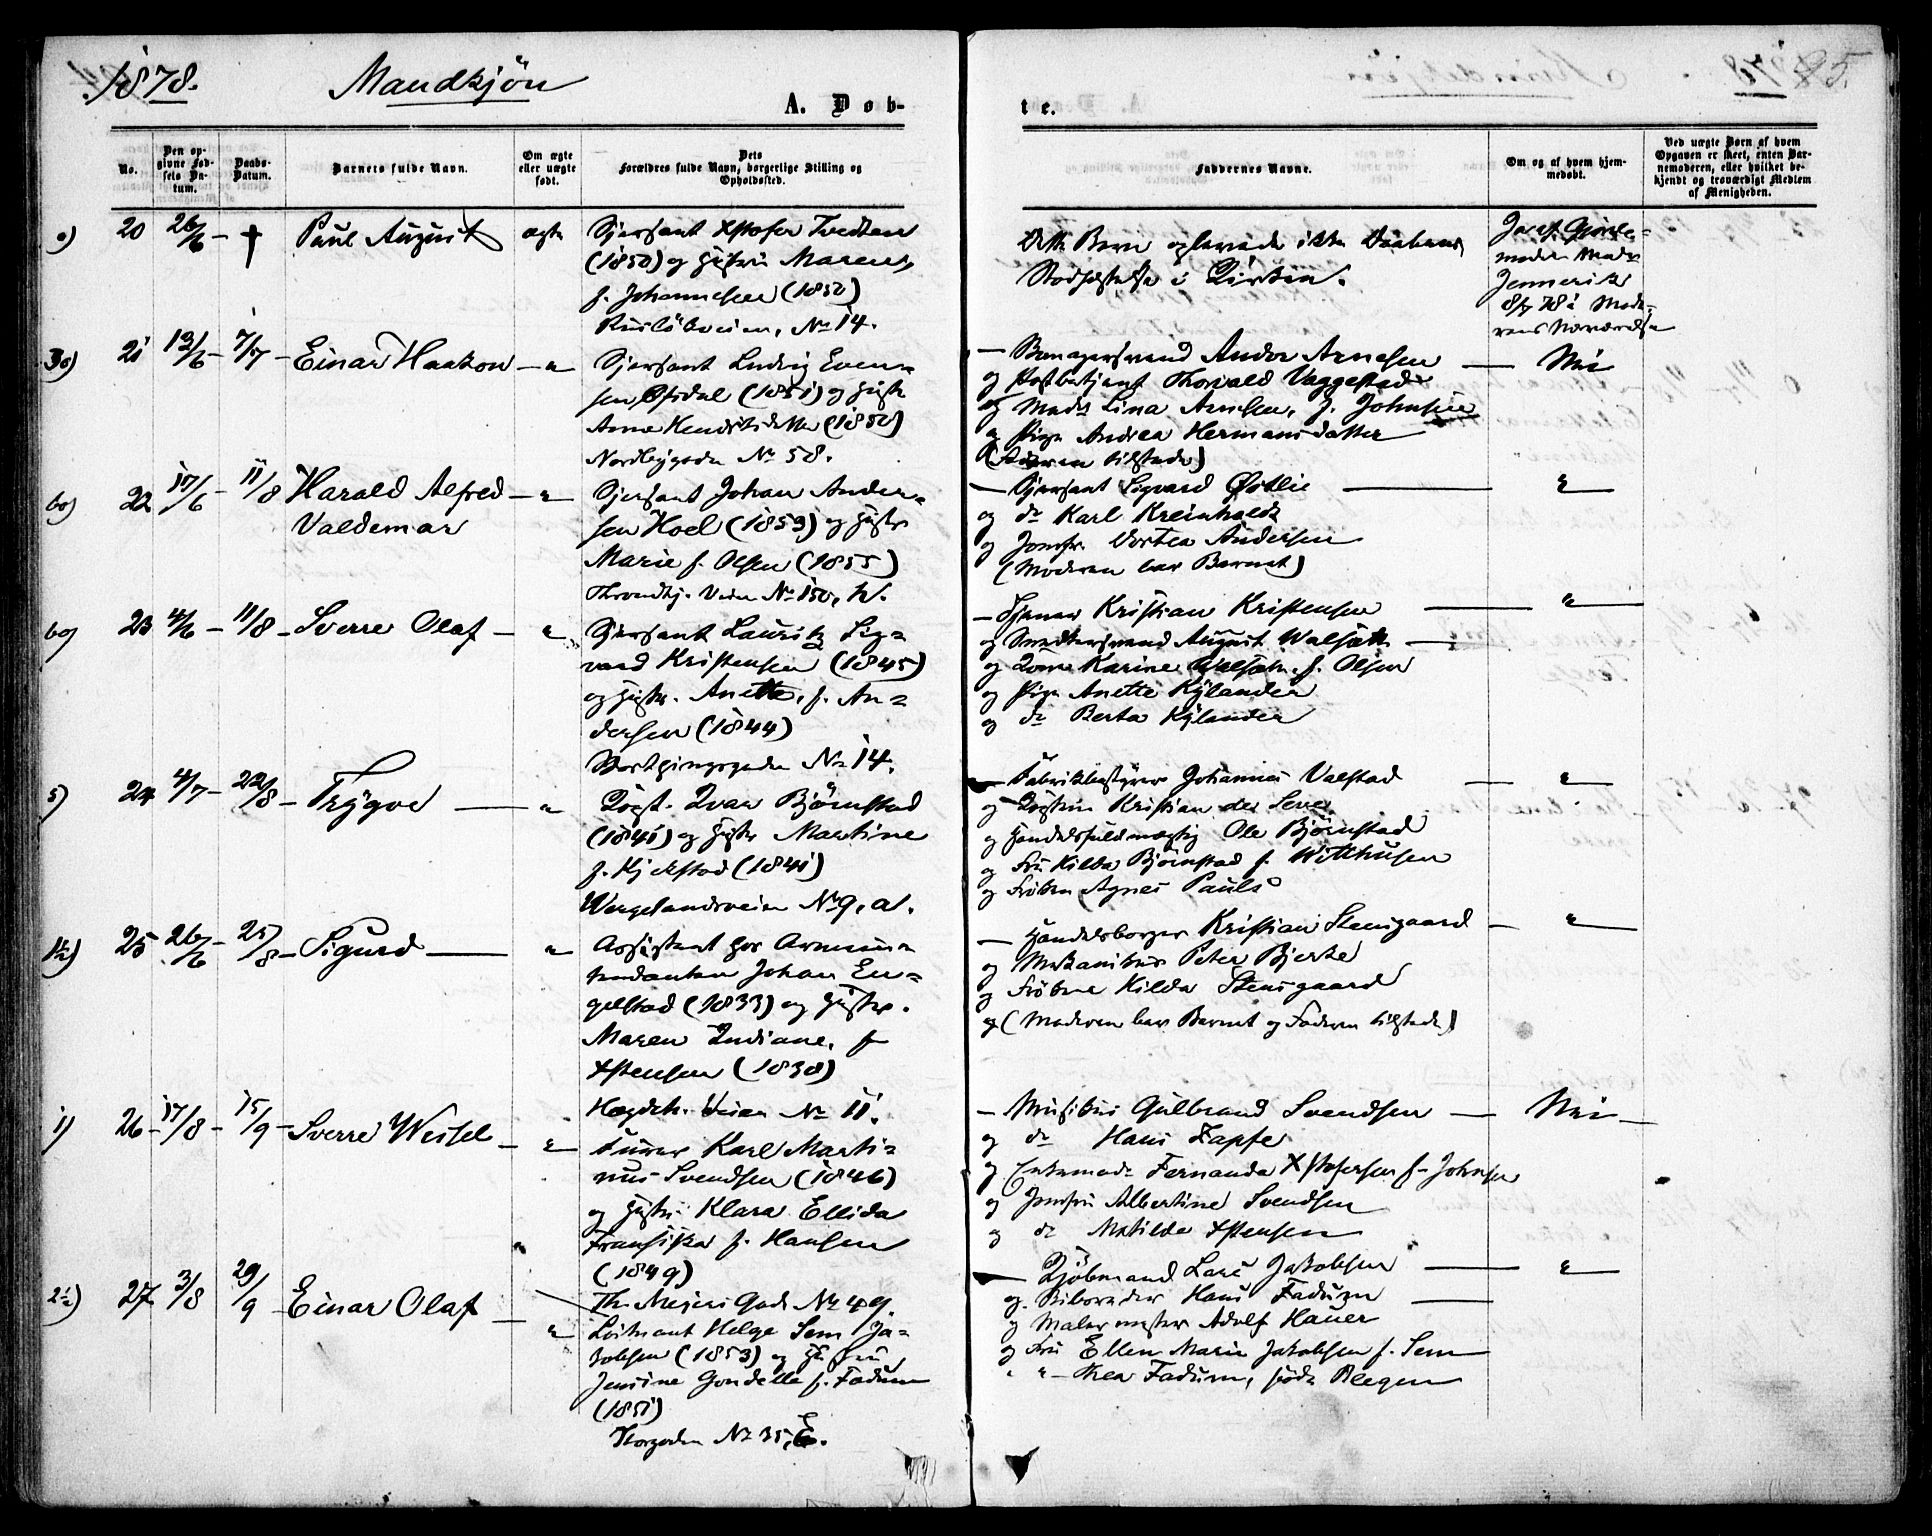 1878.
Mandkjön
A. Døb-
te.
85.
No.
Den opgivne Fødsels Datum.
Daabs-Datum.
Barnets fulde Navn.
Om ægte eller uægte født.
Dets Forældres fulde Navn, borgerlige Stilling og Opholdssted.
Faddernes Navne.
Om og af hvem hjemmedøbt.
Ved uægte Børn af hvem Opgaven er skeet, enten Barnemoderen, eller hvilket bekjendt og troværdigt Medlem af Menigheden.
20 26/6 – † Paul August ægte
Sjersant Xstofer Tvedten
(1850) og Hustru Maren,
f. Johannesen (1850)
No 14.
Dette Barn oplevede ikke Daabens
Stadfæstelse i Kirken.
moder Mads
8/7 78 i Mode-
rens Nærværelse
21 13/6 – 7/7 – Einar Haakon – "
Sjersant Ludvig Even-
sen Øfsdal (1851) og Hustr
Anne Hendriksdatter (1850)
Nordbygaden No 58.
– Andor Arnesen — Nei
og Postbetjent Thorvald Vaggestad
og Mads Lina Arnesen, f. Johnsen
og Pige Andrea Hermansdatter
(Faderen tilstede)
22 17/6 – 11/8 Harald Alfred – "
Valdemar
Sjersant Johan Ander-
sen Hoel (1853) og Hustr.
Marie f. Olsen (1855)
Throndhj. Veien No 150, W.
– Sjersant Sigvard Østlie — "
og do Karl Kreinholdt
og Jomfr. Dortea Andersen
(Moderen bar Barnet)
23 4/6 – 11/8 – Sverre Olaf – "
Sjersant Lauritz Sig-
vard Kristensen (1845)
og Hustr. Anette, f. An-
dersen (1844)
Storthingsgaden No 14.
– Tjener Kristian Kristensen — "
og Snedkersvend August Walsøth —
og Kone Karine Walsøth f. Olsen
og Pige Anette Kylander
og do Berta Kylander
5) 24 4/7 – 22/8 – Trygve — "
Kögst. Ivar Björnstad
(1841) og Hustr Martine
f. Kjelstad (1841)
Wergelandsveien No 9, a.
Fabrikbestyrer Johannes Valstad — "
og Kristian
og Handelsfuldmægtig Ole Björnstad
og Fru Hilda Björnstad f. Witthusen
og Fröken Agnes Pauls
1½) 25 26/6 – 25/8 – Sigurd — "
Assistent hos Armein-
tendanten Johan En-
gelstad (1833) og Hustr.
Maren Indiane, f
Xstensen (1838)
Hægdeh. Veien No 11.
– Handelsborger Kristian Stensgaard – "
og Mekanikus Peter Bjerke
og Fröken Hilda Stensgaard
og (Moderen bar Barnet og Faderen tilstede)
1) 26 – 17/8 – 15/9 – Sverre Wessel – "
Furer Karl Marti-
nus Svendsen (1846)
og Hustr Klara Ellida
Fransiska f. Hansen
(1849)
Th. Mejers Gade No 49.
– Musikus Gulbrand Svendsen — Nei —
og do Hans Zapfe
og Enkemads Fernanda Xstofersen f. Johnsen
og Jomfru Albertine Svendsen
og do Matilde Xstensen
2½) 27 3/8 29/9 – Einar Olaf – "
Löitnant Helge Sem Ja-
kobsen (1853) og H. Fru
Jensine Gondelle f. Fadum
(1851)
Storgaden No 35, E.
– Kjöbmand Lars Jakobsen — "
og Hans Fadum —
og Malermester Adolf Hauer
og Fru Ellen Marie Jakobsen f. Sem
" " – Thea Fadum, föde Blegen